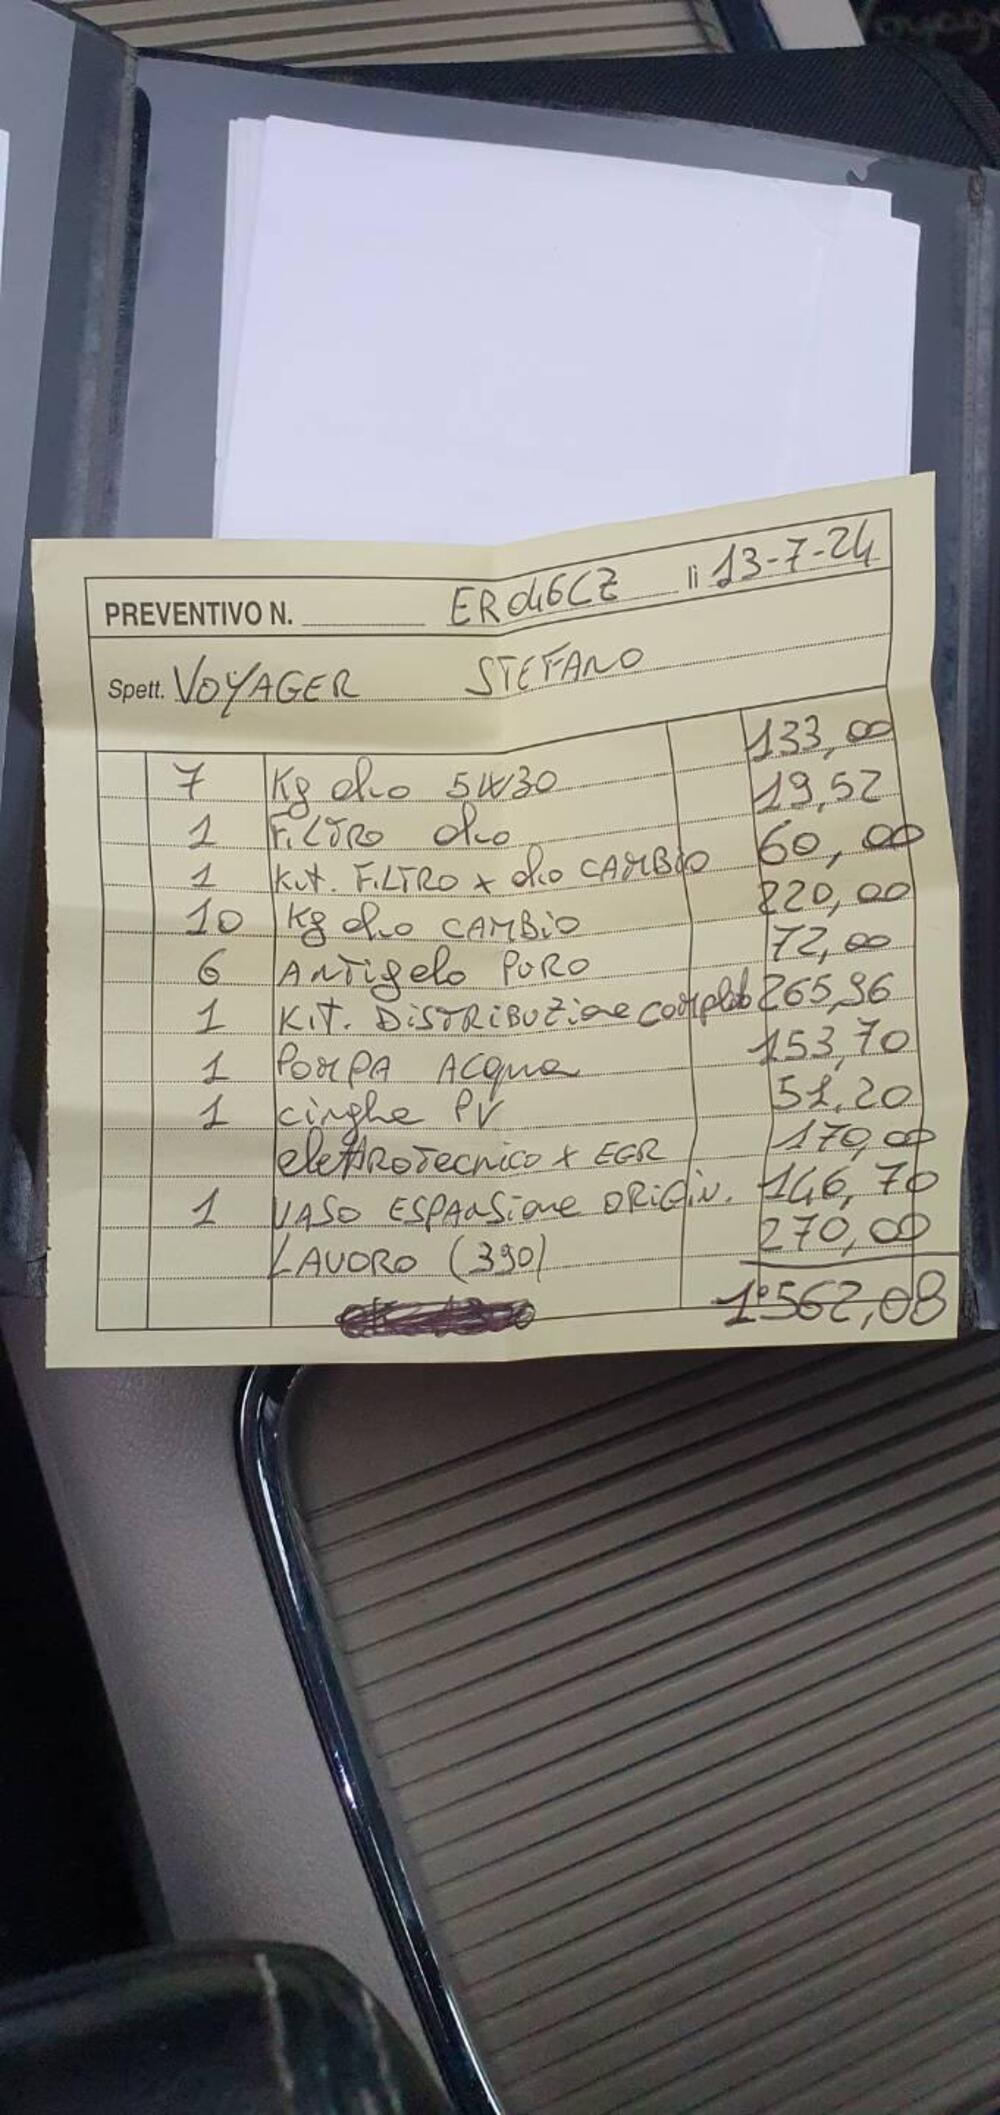 Voyag
PREVENTIVO N. ER046CZ li 13-7-24
Spett. VOYAGER STEFANO
7 Kg olio 5W30 133,00
1 FiLTRO olio 19,52
1 Kit. FiLTRO x olio CAMBiO 60,00
10 Kg olio CAMBiO 220,00
6 ANTigelo PURO 72,00
1 KiT. DiSTRiBUZione completo 265,96
1 POMPA ACqua 153,70
1 cinghe PV 51,20
elettROTecnico x EGR 170,00
1 VASO ESPANSione ORiGiN. 146,70
LAVORO (390) 270,00
1°562,08